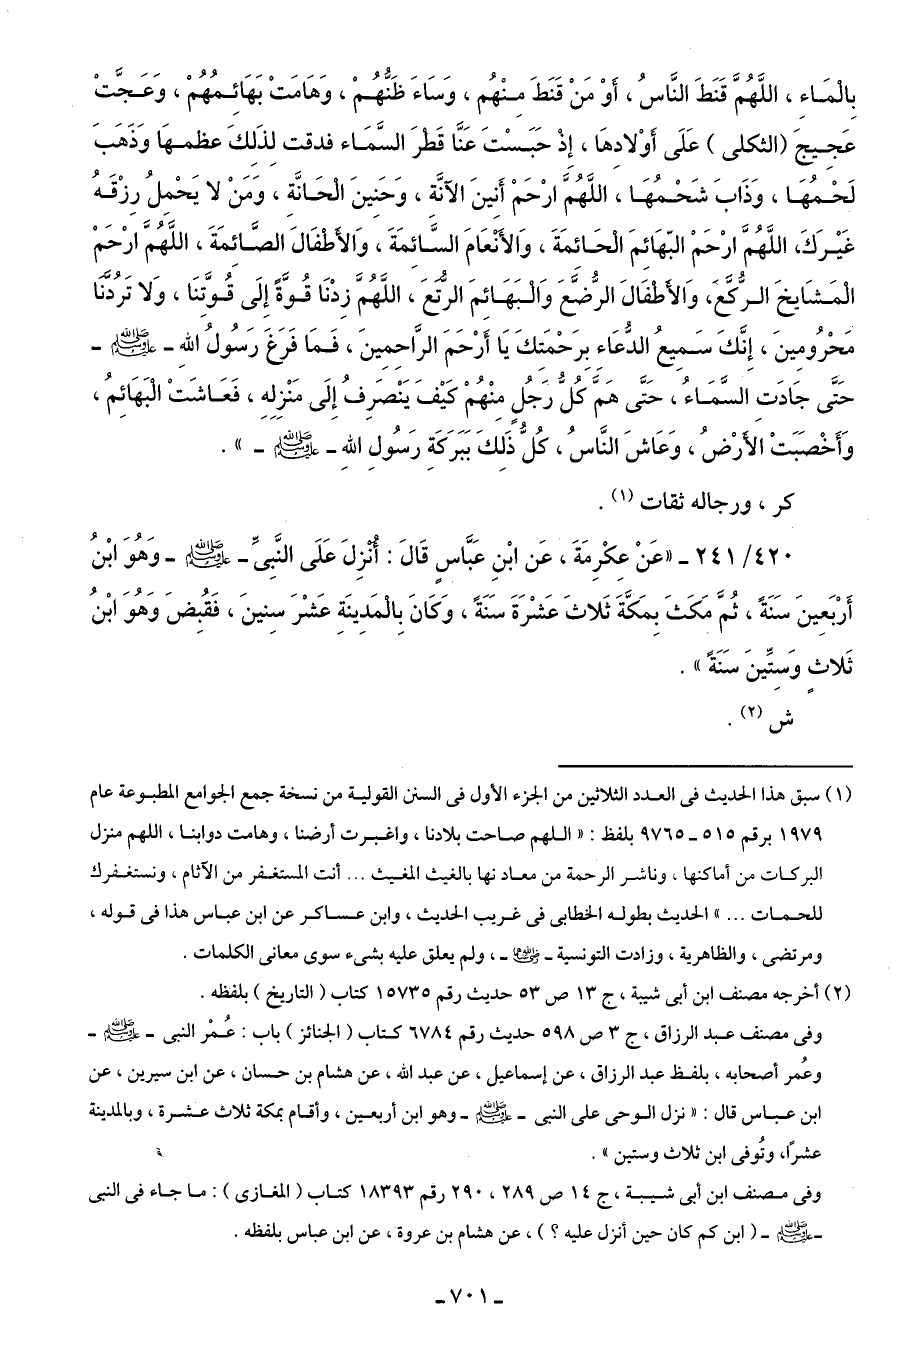 بِالْمَاءِ ، اللَّهُمَّ قَنَطَ النَّاسُ ، أَوْ مَنْ قَنَطَ مِنْهُم ، وَسَاءَ ظَنُّهُمْ ، وَهَامَتْ بَهَائِمُهُمْ ، وَعَجَّتْ
عَجِيجَ (الثكلى) عَلَى أَوْلَادِهَا ، إِذْ حَبَسْتَ عَنَّا قَطْرَ السَّمَاءِ فدقت لذَلِكَ عظمها وَذَهَبَ
لَحْمُهَا ، وَذَابَ شَحْمُهَا ، اللَّهُمَّ ارْحَمْ أَنِينَ الآنَّة ، وَحَنِينَ الْحَانَّة ، وَمَنْ لا يَحْمِلُ رِزْقَهُ
غَيْرَكَ، اللَّهُمَّ ارْحَمِ الْبَهَائِمَ الْحَائِمَةَ ، وَالأَنْعَامَ السَّائِمَةَ ، وَالأَطْفَالَ الصَّائِمَةَ ، اللَّهُمَّ ارْحَمْ
الْمَشَايِخَ الرُّكَّعَ، وَالأَطْفَالَ الرُّضَّعَ وَالْبَهَائِمَ الرُّتَّعَ ، اللَّهُمَّ زِدْنَا قُوَّةً إِلَى قُوَّتِنَا ، وَلا تَرُدَّنَا
مَحْرُومِينَ ، إِنَّكَ سَمِيعُ الدُّعَاءِ بِرَحْمَتِكَ يَا أَرْحَمَ الرَّاحِمِينَ ، فَمَا فَرَغَ رَسُولُ اللهِ ـ ﷺ ـ
حَتَّى جَادَتِ السَّمَاءُ ، حَتَّى هَمَّ كُلُّ رَجُلٍ مِنْهُمْ كَيْفَ يَنْصَرِفُ إِلَى مَنْزِلِهِ ، فَعَاشَتْ الْبَهَائِمُ ،
وَأَخْصَبَتْ الأَرْضُ ، وَعَاشَ النَّاسُ ، كُلُّ ذَلِكَ بِبَرَكَةِ رَسُولِ اللهِ ـ ﷺ ـ » .
كر ، ورجاله ثقات (١) .
٢٤١/٤٢٠ ـ «عَنْ عِكْرِمَةَ ، عَن ابْنِ عَبَّاسٍ قَالَ : أُنْزِلَ عَلَى النَّبِيِّ ـ ﷺ ـ وَهُوَ ابْنُ
أَرْبَعِينَ سَنَةً ، ثُمَّ مَكَثَ بِمَكَّةَ ثَلاثَ عَشْرَةَ سَنَةً ، وَكَانَ بِالْمَدِينَةِ عَشْرَ سِنِينَ ، فَقُبِضَ وَهُوَ ابْنُ
ثَلاثٍ وَسِتِّينَ سَنَةً » .
ش (٢) .
(١) سبق هذا الحديث فى العدد الثلاثين من الجزء الأول فى السنن القولية من نسخة جمع الجوامع المطبوعة عام
١٩٧٩ برقم ٥١٥ ـ ٩٧٦٥ بلفظ : « اللهم صاحت بلادنا ، واغبرت أرضنا ، وهامت دوابنا ، اللهم منزل
البركات من أماكنها ، وناشر الرحمة من معادنها بالغيث المغيث ... أنت المستغفر من الآثام ، ونستغفرك
للحمات ... » الحديث بطوله الخطابى فى غريب الحديث ، وابن عساكر عن ابن عباس هذا فى قوله ،
ومرتضى ، والظاهرية ، وزادت التونسية ـ ـ ، ولم يعلق عليه بشىء سوى معانى الكلمات .
(٢) أخرجه مصنف ابن أبى شيبة ، ج ١٣ ص ٥٣ حديث رقم ١٥٧٣٥ كتاب ( التاريخ ) بلفظه .
وفى مصنف عبد الرزاق ، ج ٣ ص ٥٩٨ حديث رقم ٦٧٨٤ كتاب ( الجنائز ) باب : عُمْر النبى ـ ﷺ ـ
وعُمر أصحابه ، بلفظ عبد الرزاق ، عن إسماعيل ، عن عبد الله ، عن هشام بن حسان ، عن ابن سيرين ، عن
ابن عباس قال : « نزل الوحى على النبى ـ ﷺ ـ وهو ابن أربعين ، وأقام بمكة ثلاث عشرة ، وبالمدينة
عشرًا، وتُوفى ابن ثلاث وستين » .
وفى مصنف ابن أبى شيبة ، ج ١٤ ص ٢٨٩ ، ٢٩٠ رقم ١٨٣٩٣ كتاب ( المغازى ) : ما جاء فى النبى
ـ ﷺ ـ ( ابن كم كان حين أنزل عليه ؟ ) ، عن هشام بن عروة ، عن ابن عباس بلفظه .
ـ ٧٠١ ـ